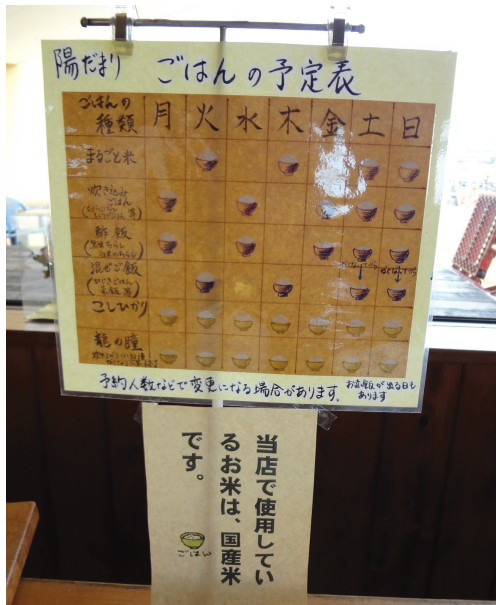 陽だまり ごはんの予定表
ごはんの
種類 月 火 水 木 金 土 日
まるごと米
炊き込み
ごはん
酢飯
混ぜご飯
こしひかり
龍の瞳
予約人数などで変更になる場合があります。
お赤飯が出る日も
あります
当店で使用してい
るお米は、国産米
です。
ごはん